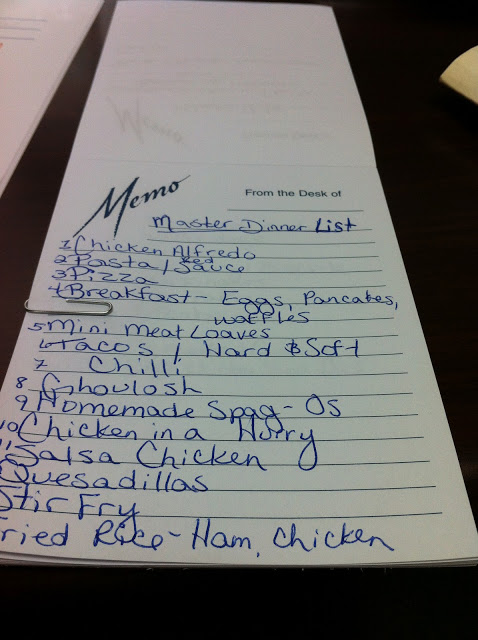 Memo
From the Desk of
Master Dinner List
1 Chicken Alfredo
2 Pasta / Red Sauce
3 Pizza
4 Breakfast - Eggs, Pancakes,
waffles
5 Mini meat Loaves
6 Tacos / Hard & Soft
7 Chilli
8 Ghoulosh
9 Homemade Spag-Os
10 Chicken in a Hurry
11 Salsa Chicken
Quesadillas
Stir Fry
ried Rice - Ham, Chicken